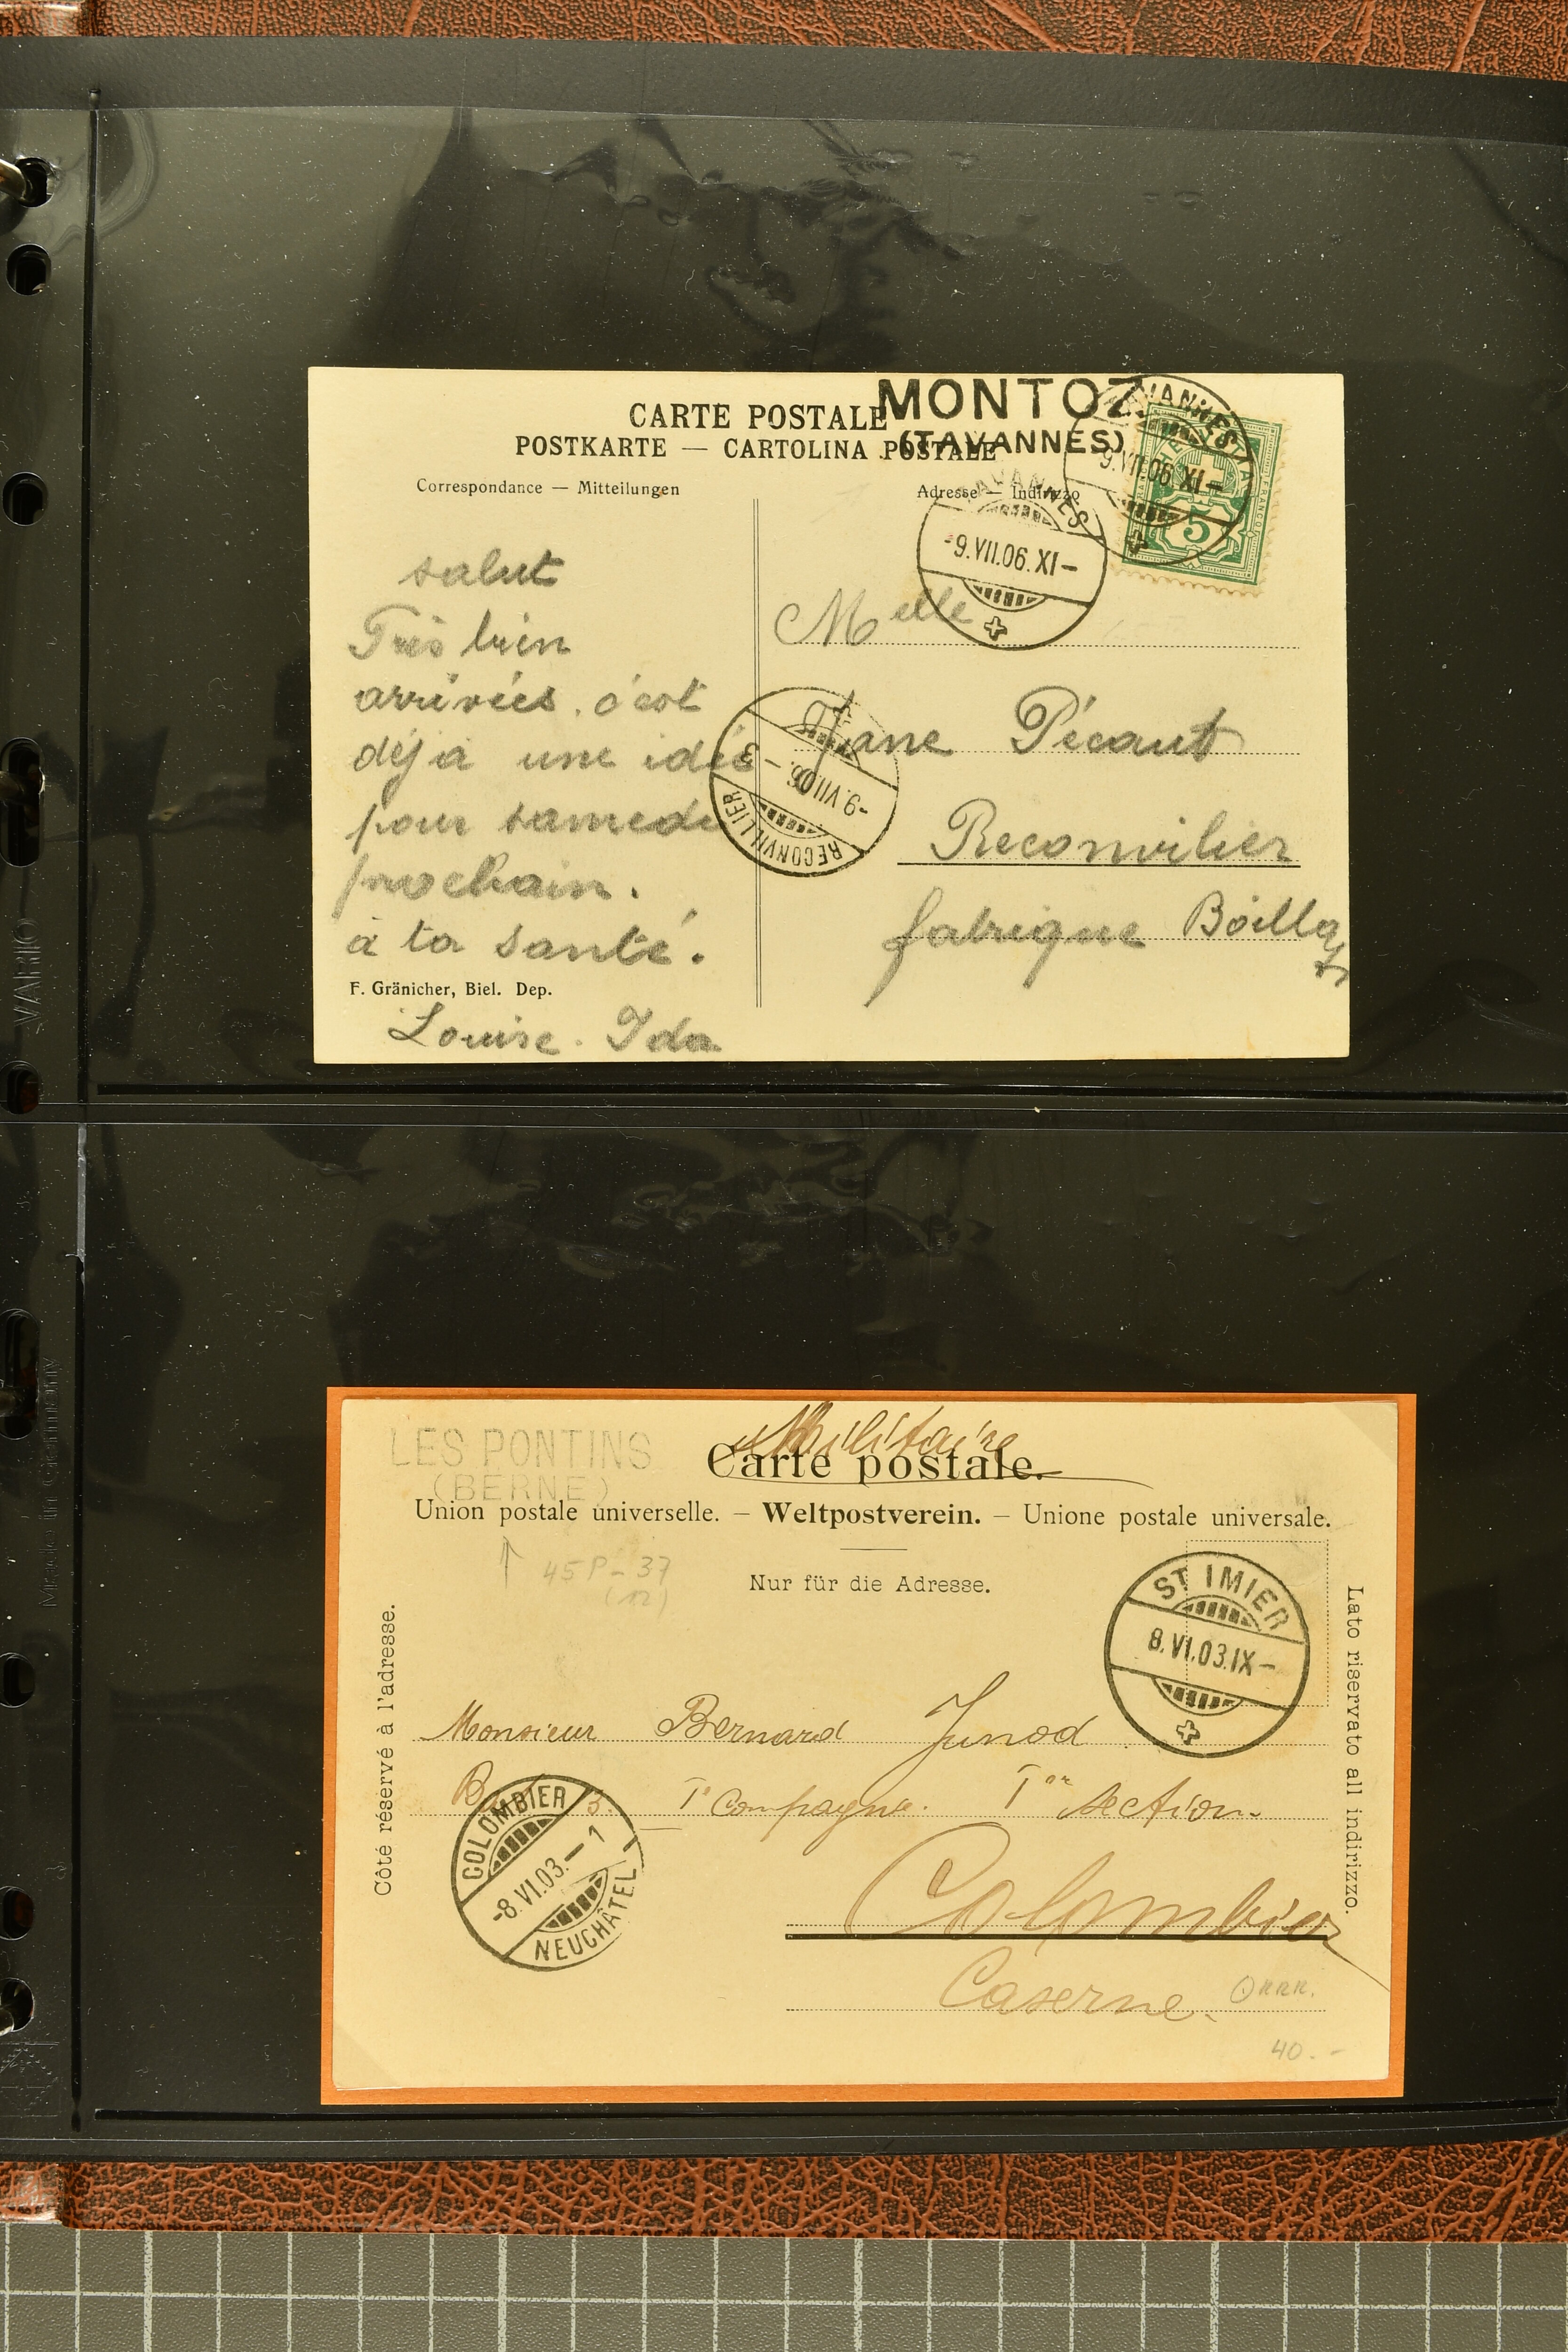 MONTOZ
(TAVANNES)
CARTE POSTALE
POSTKARTE — CARTOLINA POSTALE
Correspondance — Mitteilungen
Adresse — Indirizzo
TAVANNES
-9.VII.06 XI-
FRANCO
5
TAVANNES
-9.VII.06.XI-
salut
Très bien
arrivées. c'est
déjà une idée
pour samedi
prochain.
à ta santé.
F. Gränicher, Biel. Dep.
Louise. Ida
Melle
Jane Pécaut
Reconvilier
fabrique
RECONVILLIER
-9.VII.06.- 3
LES PONTINS
(BERNE)
Militaire
Carte postale.
Union postale universelle. — Weltpostverein. — Unione postale universale.
45P-37
(12)
Nur für die Adresse.
ST IMIER
8.VI.03.IX-
Côté réservé à l'adresse.
Lato riservato all indirizzo.
Monsieur Bernard Junod
3. Ie Compagnie. Ière Section
COLOMBIER
-8.VI.03.- 1
NEUCHÂTEL
Colombier
Caserne.
40.-
VARIO
Made in Germany